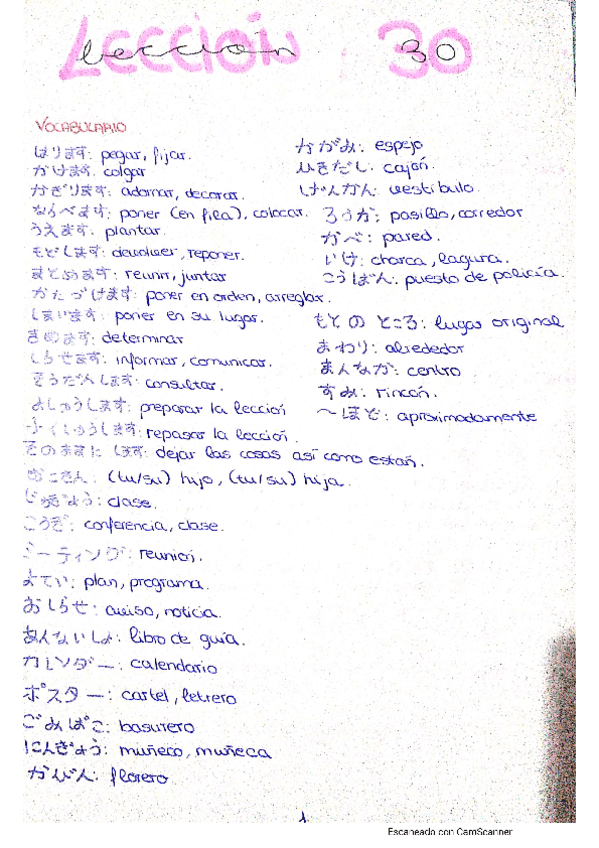 LECCIÓN 30
lección 30
VOCABULARIO
はります: pegar, fijar.
かけます: colgar
かざります: adornar, decorar.
ならべます: poner (en fila), colocar.
うえます: plantar.
もどします: devolver, reponer.
まとめます: reunir, juntar
かたづけます: poner en orden, arreglar.
しまいます: poner en su lugar.
きめます: determinar
しらせます: informar, comunicar.
そうだんします: consultar.
よしゅうします: preparar la lección
ふくしゅうします: repasar la lección.
そのままに します: dejar las cosas así como están.
おこさん: (tu/su) hijo, (tu/su) hija.
じゅぎょう: clase.
こうぎ: conferencia, clase.
ミーティング: reunión.
よてい: plan, programa.
おしらせ: aviso, noticia.
あんないしょ: libro de guía.
カレンダー: calendario
ポスター: cartel, letrero
ごみばこ: basurero
にんぎょう: muñeco, muñeca
かびん: florero
かがみ: espejo
ひきだし: cajón.
げんかん: vestíbulo.
ろうか: pasillo, corredor
かべ: pared.
いけ: charca, laguna.
こうばん: puesto de policía.
もとの ところ: lugar original
まわり: alrededor
まんなか: centro
すみ: rincón.
～ほど: aproximadamente
1
Escaneado con CamScanner